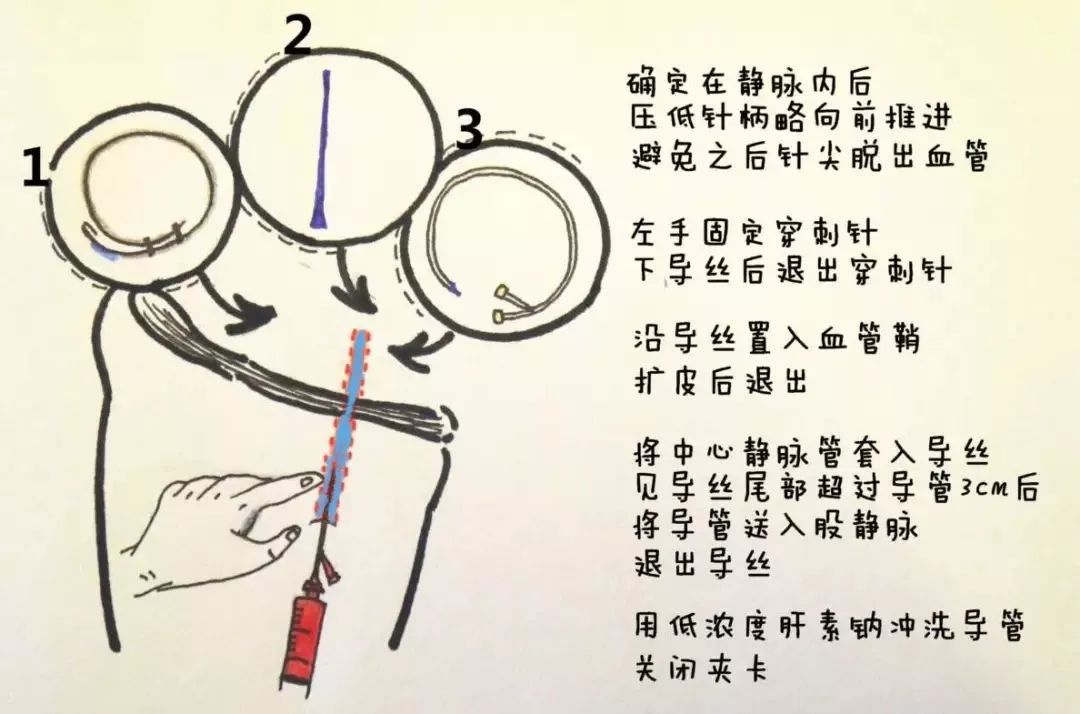 1
2
3
确定在静脉内后
压低针柄略向前推进
避免之后针尖脱出血管
左手固定穿刺针
下导丝后退出穿刺针
沿导丝置入血管鞘
扩皮后退出
将中心静脉管套入导丝
见导丝尾部超过导管3cm后
将导管送入股静脉
退出导丝
用低浓度肝素钠冲洗导管
关闭夹卡